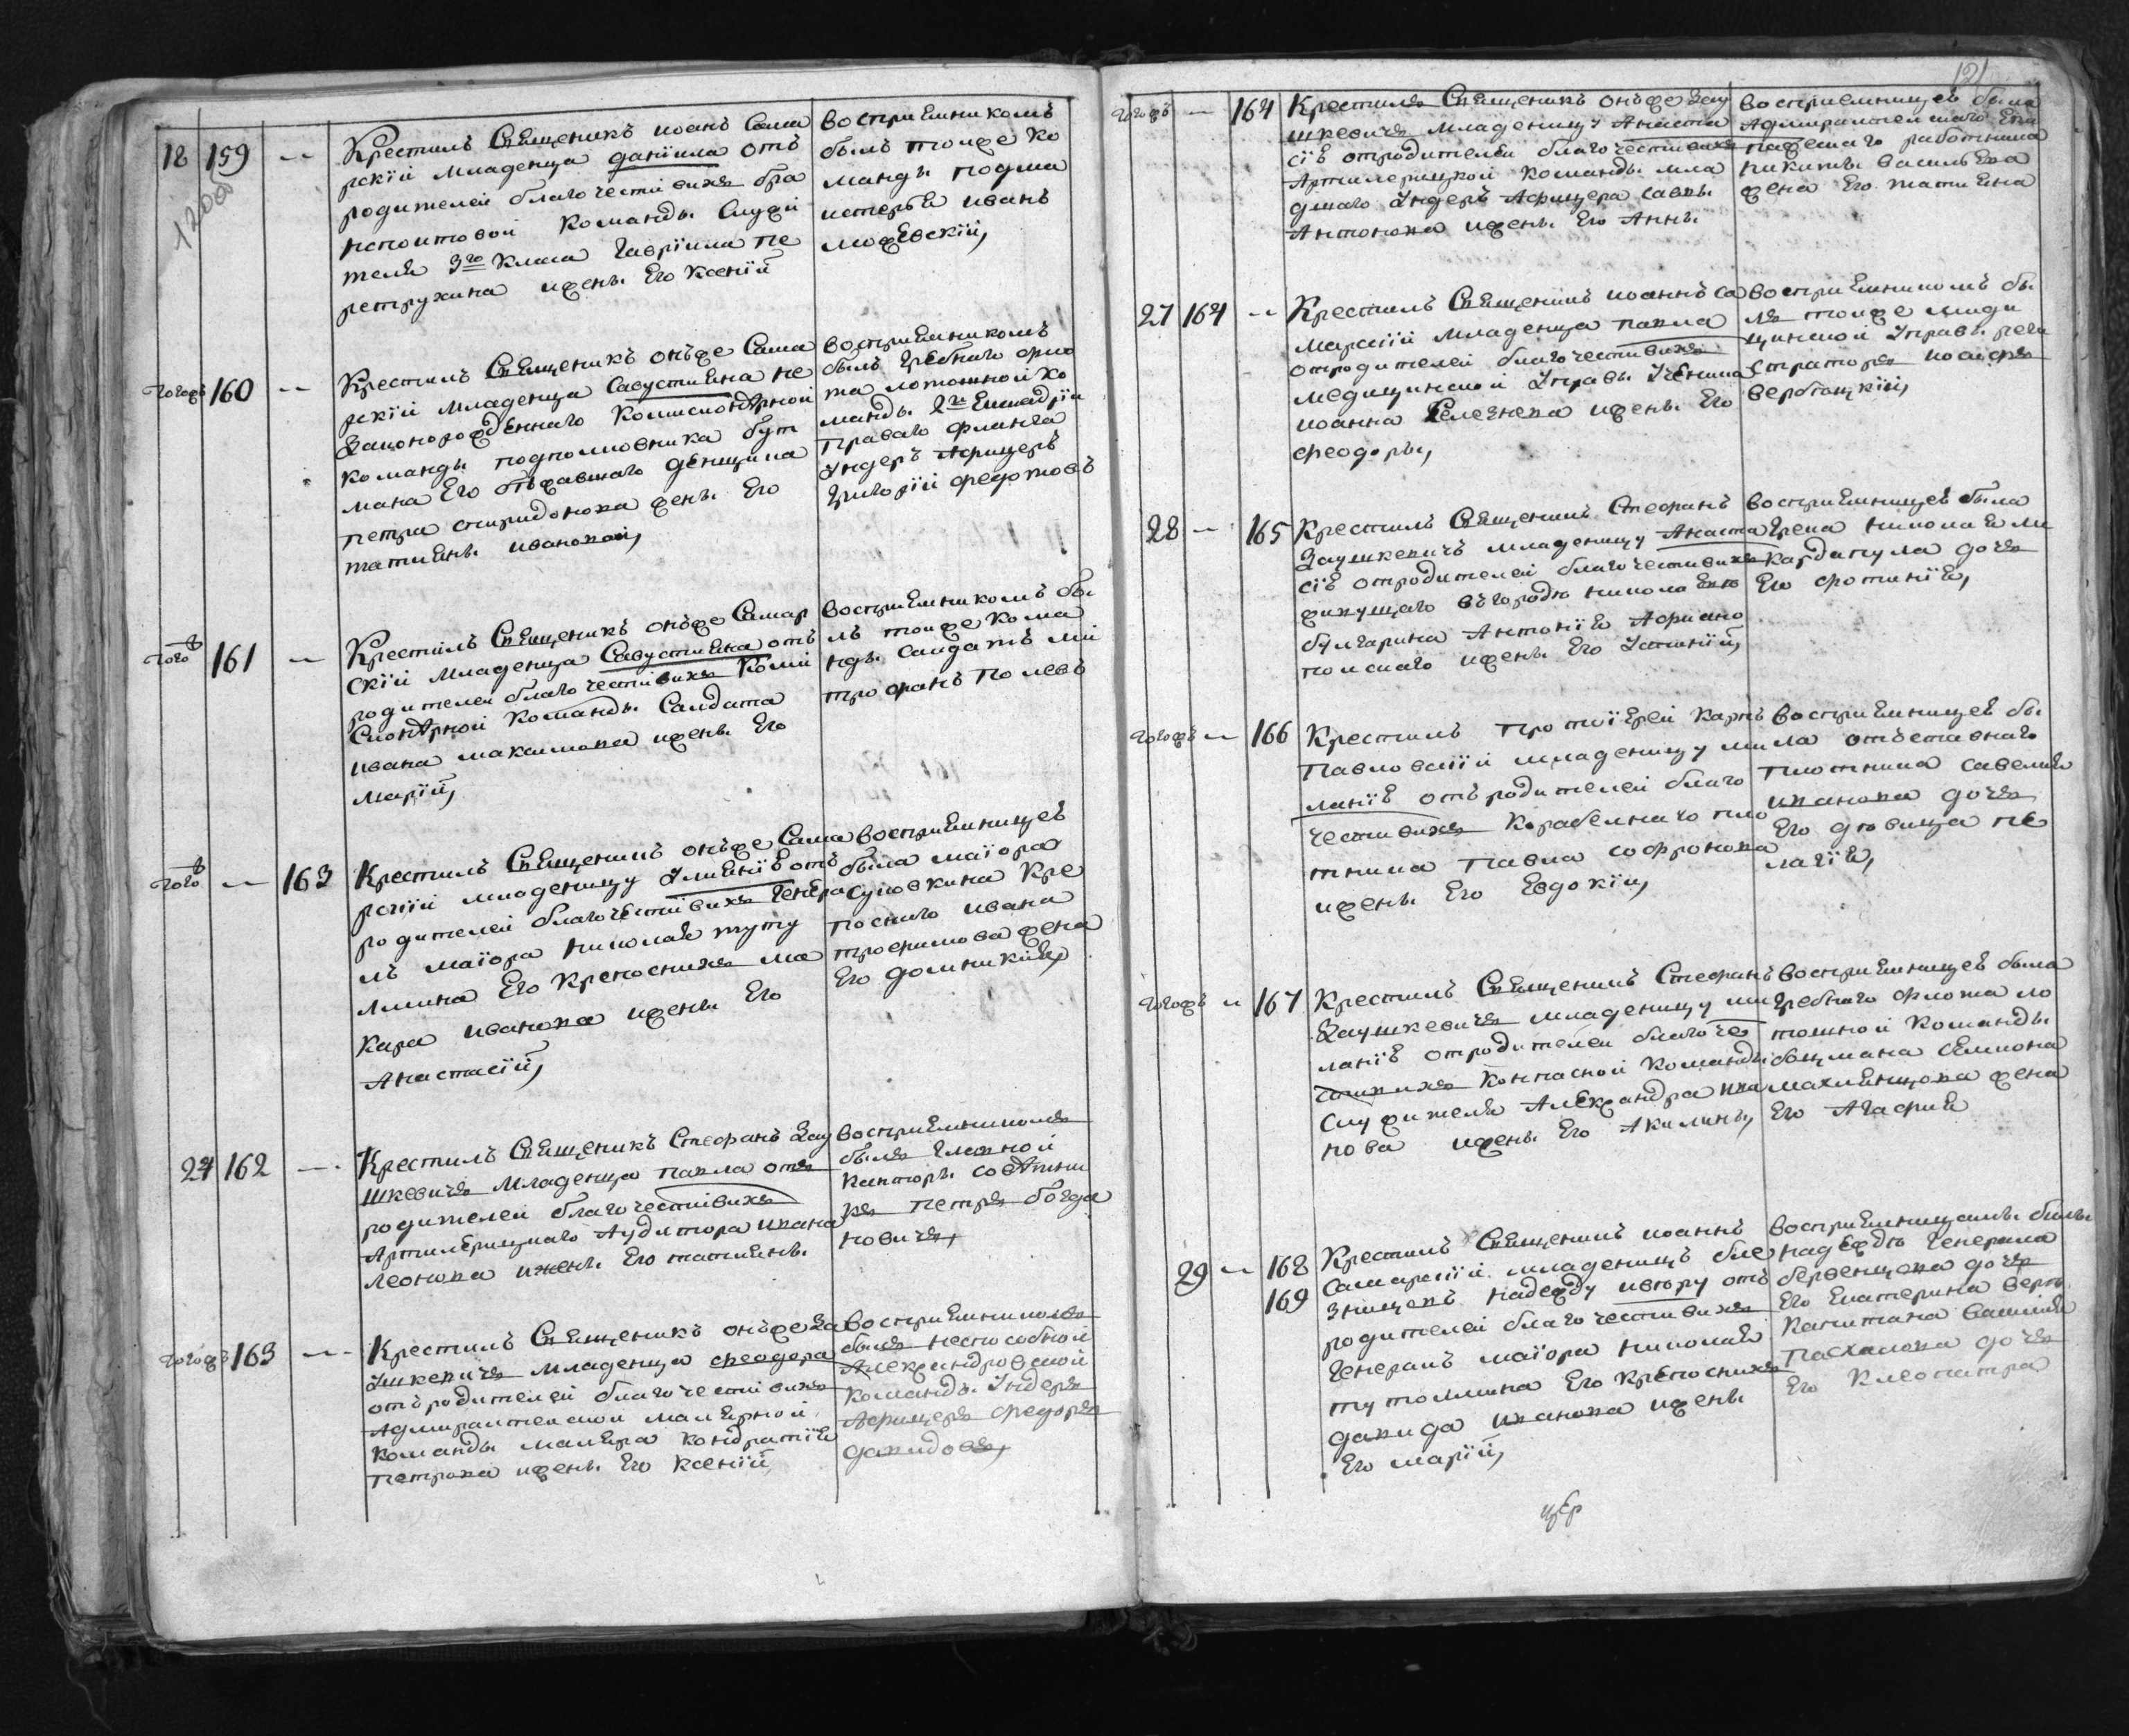 18 159 -- Крестилъ Священикъ Иоанъ Сама
рскїй младенца данїила отъ
родителей благочестивихъ бра
нспоитовой команды Служи
теля 3го класа Гаврїила Пе
ретрухина ижены Его Ксенїи
воспрїемникомъ
былъ тоиже ко
манды подма
стерье Иванъ
можевский,
1200
Тогожъ 160 -- Крестилъ Священикъ онъже Сама
рскїй младенца Савустиана не
Законорожденнаго Комисионерной
команды подполковника бут
мана Его
петра спиридонова жены Его
татияны Ивановой,
воспрїемникомъ
былъ гребнаго фло
та лотошной ко
манды 2й Ескадрїи
праваго фланга
Ундеръ Афицеръ
Григорїй федотовъ
Того 161 -- Крестилъ Священикъ онъже Самар
скїй младенца Савустиана отъ
родителей благочестивихъ Коми
Сионерной Команды Салдата
Ивана максимова ижены Его
Марїи,
воспрїемникомъ бы
лъ тоиже кома
нды Салдатъ ми
трофанъ Полевъ
Того -- 163 Крестилъ Священикъ онъже Сама
рскїй младеницу Улианїю отъ
родителей благочестивихъ Генера
лъ маїора николая туту
лмина Его Крепоснихъ ма
кара Иванова ижены Его
Анастасїи,
воспрїемницею
была маїора
Суковкина Кре
поснаго Ивана
трофимова жена
Его доминикия,
24 162 -- Крестилъ Священикъ Стефанъ Зау
шкевичъ младенца павла отъ
родителей благочестивихъ
Артилерицкаго Аудитора Ивана
Леонова ижены Его татияны
воспрїемникомъ
былъ Главной
канторы Советни
къ петръ богда
новичъ,
Тогожъ 163 -- Крестилъ Священикъ онъже За
ушкевичъ младенца феодора
отъ родителей благочестивихъ
Адмиралтейской малярной
Команды маляра Кондратїя
Петрова ижены Его Ксенїи,
воспрїемникомъ
былъ неспособной
Александровской
команды Ундеръ
Афицеръ федоръ
давидовъ,
121
Тогожъ -- 164 Крестилъ Священикъ онъже Зау
шкевичъ младеницу Анаста
сїю отродителей благочестивихъ
Артилерицкой Команды мла
дшаго Ундеръ Афицера Савы
Антонова ижены Его Анны
воспрїемницею была
Адмиралтейскаго Еки
пажескаго работника
никиты васильева
жена Его татияна
27 164 -- Крестилъ Священикъ Иоаннъ Са
марскїй младенца павла
отродителей благочестивихъ
медицинской Управы Ученика
Иоанна Селезнева ижены Его
феодоры,
воспрїемникомъ бы
лъ тоиже меди
цинской Управы реги
стратор Иосифъ
вербицкїй,
28 -- 165 Крестилъ Священикъ Стефанъ
Заушкевичъ младеницу Анаста
сїю отродителей благочестивихъ
живущаго въгороде николаеве
булгарина Антонїя Афияно
полскаго ижены Его Устинїи,
воспрїемницею была
Грека николая ми
Кардапула дочъ
Его фотинїя,
Тогожъ -- 166 Крестилъ Протоїерей Карпъ
Павловскїй младеницу ми
ланїю отъ родителей благо
честивихъ Корабелнаго пло
тника Павла Софронова
ижены Его Евдокїи,
воспрїемницею бы
ла отъставнаго
плотника Савелия
Иванова дочъ
Его девица пе
лагїя,
Тогожъ -- 167 Крестилъ Священикъ Стефанъ
Заушкевичъ младеницу ми
ланїю отродителей благоче
стивихъ Конпасной Команды
Служителя Александра Ива
нова ижены Его Акилины,
воспрїемницею была
гребнаго флота ло
тошной Команды
боцмана Семиона
Махленцова жена
Его Агафия
29 -- 168 Крестилъ Священикъ Иоаннъ
169 Самарскїй младеницъ бле
знецовъ надежду ивтору отъ
родителей благочестивихъ
Генералъ маїора николая
тутолмина Его крепоснихъ
давида Иванова ижены
Его Марїи,
воспрїемницами были
надежде Генерала
бервенцова дочъ
Его Екатерина верт.
капитана Василия
Паскалова дочъ
Его Клеопатра
цер